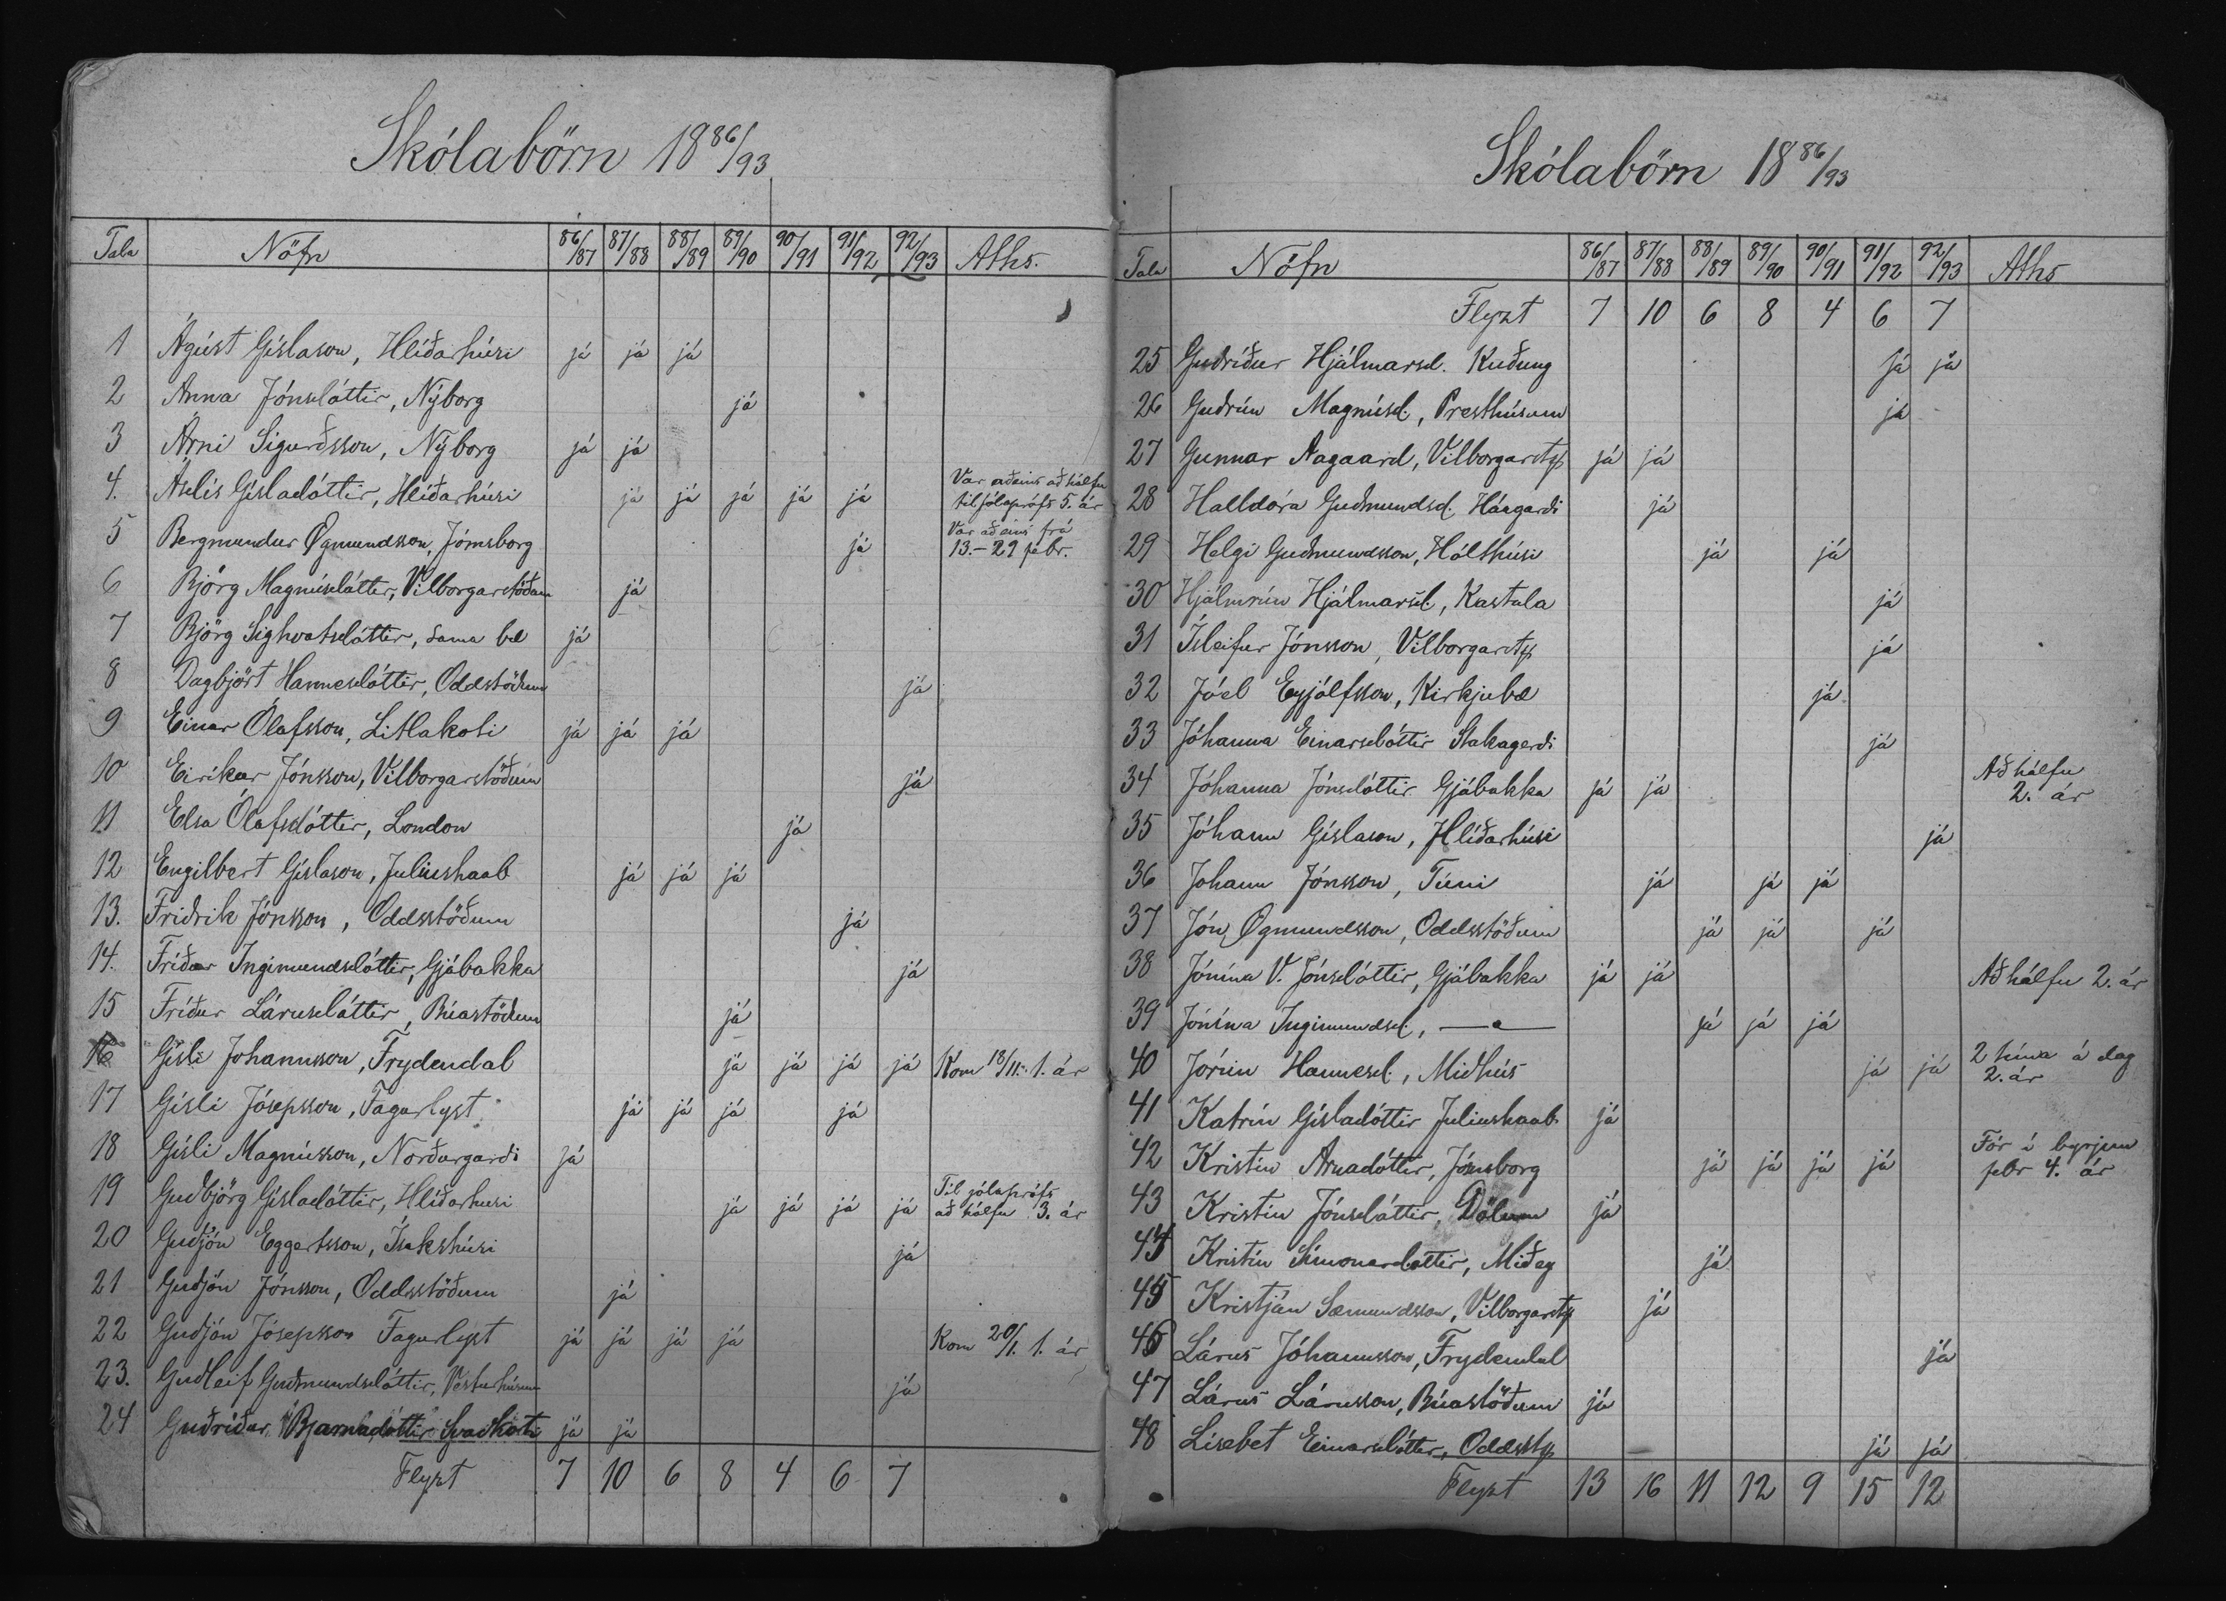 Skólabörn 18 86/93
Tala Nöfn 86/87 87/88 88/89 89/90 90/91 91/92 92/93 Aths.
1 Ágúst Gíslason, Hlíðarhúsi já já já
2 Anna Jónsdóttir, Nýborg já
3 Árni Sigurðsson, Nýborg já já
4. Ásdís Gísladóttir, Hlíðarhúsi já já já já já Var aðeins að hálfu til jólaprófs 5. ár
5 Bergmundur Ögmundsson, Jómsborg já Var aðeins frá 13.-29 febr.
6 Björg Magnúsdóttir, Vilborgarstöðum já
7 Björg Sighvatsdóttir, sama bæ já
8 Dagbjört Hannesdóttir, Oddstöðum já
9 Einar Ólafsson, Litlakoti já já já
10 Eiríkur Jónsson, Vilborgarstöðum já
11 Elsa Ólafsdóttir, London já
12 Engilbert Gíslason, Juliushaab já já já
13. Friðrik Jónsson, Oddsstöðum já
14. Fríður Ingimundsdóttir, Gjábakka já
15 Fríður Lárusdóttir, Búastöðum já
16 Gísli Johannsson, Frydendal já já já já Kom 18/11. 1. ár
17 Gísli Jósepsson, Fagurlyst já já já já
18 Gísli Magnússon, Norðurgarði já
19 Guðbjörg Gísladóttir, Hlíðarhusi já já já já Til jólaprófs að hálfu 3. ár
20 Guðjón Eggertsson, Ísakshúsi já
21 Guðjón Jónsson, Oddsstöðum já
22 Guðjón Jósepsson Fagurlyst já já já já Kom 20/1. 1. ár
23. Guðleif Guðmundsdóttir, Vesturhúsum já
24 Guðríður Bjarnadóttir Svaðkoti já já
Flyzt 7 10 6 8 4 6 7
Skólabörn 18 86/93
Tala Nöfn 86/87 87/88 88/89 89/90 90/91 91/92 92/93 Aths
Flyzt 7 10 6 8 4 6 7
25 Guðríður Hjálmarsd. Kuðung já já
26 Guðrún Magnúsd., Presthúsum já
27 Gunnar Aagaard, Vilborgarst. já já
28 Halldóra Guðmundsd. Háagarði já
29 Helgi Guðmundsson, Hólthúsi já já
30 Hjálmrún Hjálmarsd., Kastala já
31 Ísleifur Jónsson, Vilborgarst. já
32 Jóel Eyjólfsson, Kirkjubæ já
33 Jóhanna Einarsdóttir Stakagerði já
34 Jóhanna Jónsdóttir Gjábakka já já Að hálfu 2. ár
35 Jóhann Gíslason, Hlíðarhúsi já
36 Johann Jónsson, Túni já já já
37 Jón Ögmundsson, Oddsstöðum já já já
38 Jónína V. Jónsdóttir, Gjábakka já já Að hálfu 2. ár
39 Jónína Ingimundsd., —〃— já já já
40 Jórún Hannesd., Miðhús já já 2 tíma á dag 2. ár
41 Katrín Gísladóttir Juliushaab já
42 Kristín Árnadóttir, Jómsborg já já já já Fór í byrjun febr 4. ár
43 Kristín Jónsdóttir, Dölum já
44 Kristín Símonardóttir, Miðey já
45 Kristján Sæmundsson, Vilborgarst. já
46 Lárus Jóhannsson, Frydendal já
47 Lárus Lárusson, Búastöðum já
48 Lísebet Einarsdóttir, Oddsst. já já
Flyzt 13 16 11 12 9 15 12